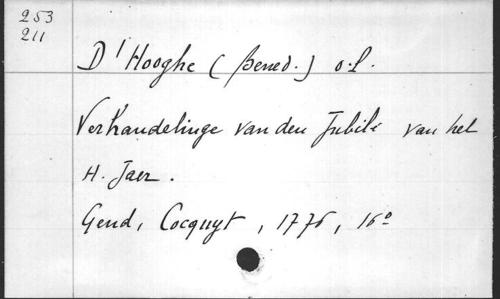 253
211
D'Hooghe (Bened.) o.l.
Verhandelinge van den Jubilé van het
H. Jaer.
Gend, Cocquyt, 1776, 16º